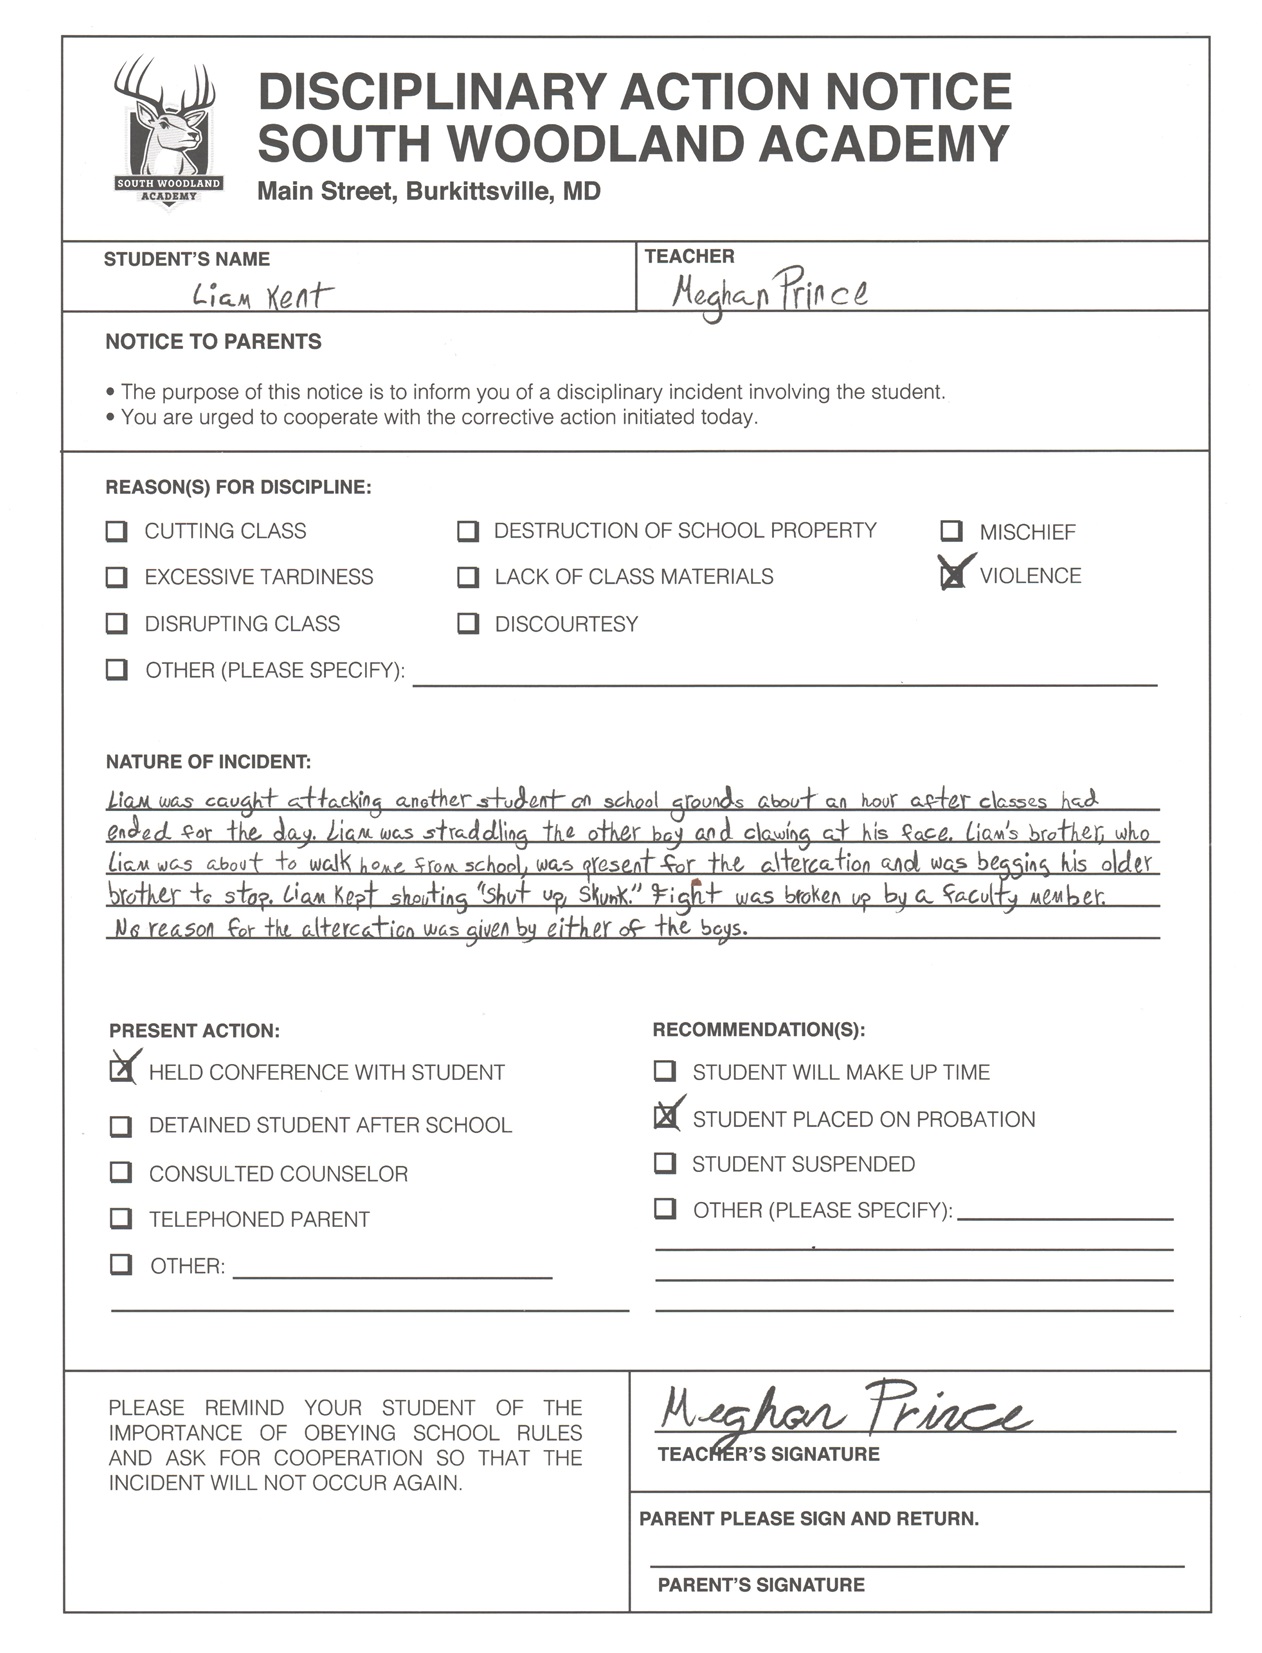 SOUTH WOODLAND
ACADEMY
DISCIPLINARY ACTION NOTICE
SOUTH WOODLAND ACADEMY
Main Street, Burkittsville, MD
STUDENT'S NAME
Liam Kent
TEACHER
Meghan Prince
NOTICE TO PARENTS
• The purpose of this notice is to inform you of a disciplinary incident involving the student.
• You are urged to cooperate with the corrective action initiated today.
REASON(S) FOR DISCIPLINE:
CUTTING CLASS
DESTRUCTION OF SCHOOL PROPERTY
MISCHIEF
EXCESSIVE TARDINESS
LACK OF CLASS MATERIALS
VIOLENCE
DISRUPTING CLASS
DISCOURTESY
OTHER (PLEASE SPECIFY):
NATURE OF INCIDENT:
Liam was caught attacking another student on school grounds about an hour after classes had
ended for the day. Liam was straddling the other boy and clawing at his face. Liam's brother, who
Liam was about to walk home from school, was present for the altercation and was begging his older
brother to stop. Liam kept shouting "Shut up, Skunk." Fight was broken up by a faculty member.
No reason for the altercation was given by either of the boys.
PRESENT ACTION:
HELD CONFERENCE WITH STUDENT
DETAINED STUDENT AFTER SCHOOL
CONSULTED COUNSELOR
TELEPHONED PARENT
OTHER:
RECOMMENDATION(S):
STUDENT WILL MAKE UP TIME
STUDENT PLACED ON PROBATION
STUDENT SUSPENDED
OTHER (PLEASE SPECIFY):
PLEASE REMIND YOUR STUDENT OF THE
IMPORTANCE OF OBEYING SCHOOL RULES
AND ASK FOR COOPERATION SO THAT THE
INCIDENT WILL NOT OCCUR AGAIN.
Meghan Prince
TEACHER'S SIGNATURE
PARENT PLEASE SIGN AND RETURN.
PARENT'S SIGNATURE